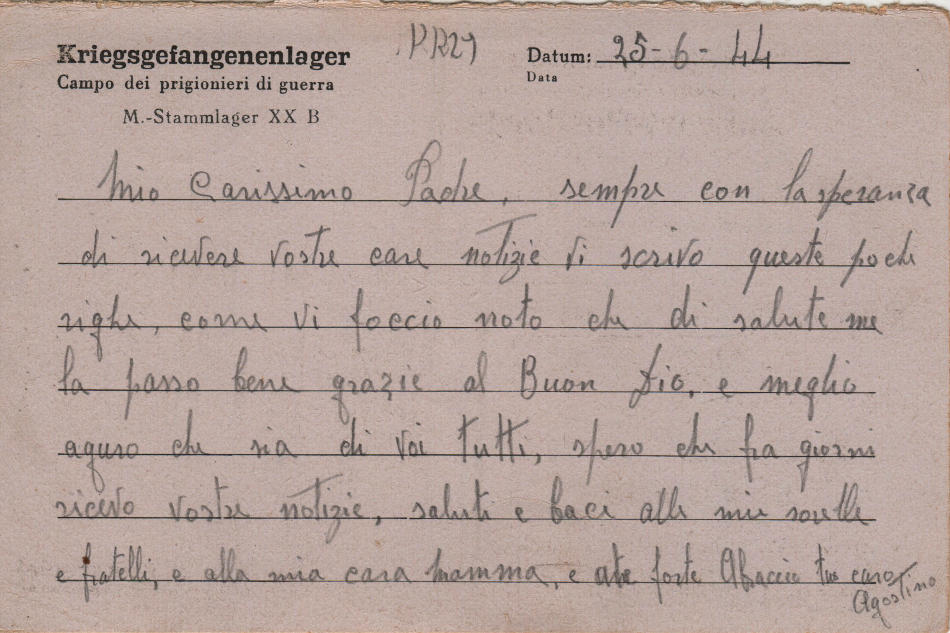 Kriegsgefangenenlager
Campo dei prigionieri di guerra
M.-Stammlager XX B
Datum: 25-6-44
Data
Mio Carissimo Padre, sempre con la speranza
di ricevere vostre care notizie vi scrivo queste poche
righe, come vi foccio noto che di salute me
la passo bene grazie al Buon Dio, e meglio
aguro che sia di voi tutti, spero che fra giorni
ricevo vostre notizie, saluti e baci alle mie sorelle
e fratelli, e alla mia cara mamma, e forte Abraccio tuo caro
Agostino